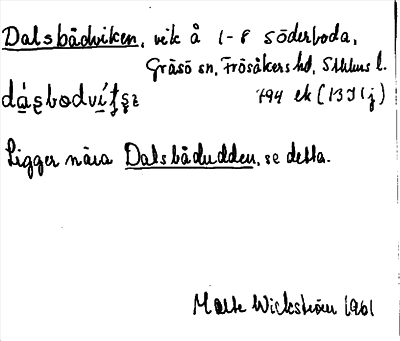 Dalsbådviken, vik å 1-8 Söderboda,
Gräsö sn, Frösåkers hd, Sthlms l.
494 ek (13I1j)
Ligger nära Dalsbådudden, se detta.
Malte Wickström 1961